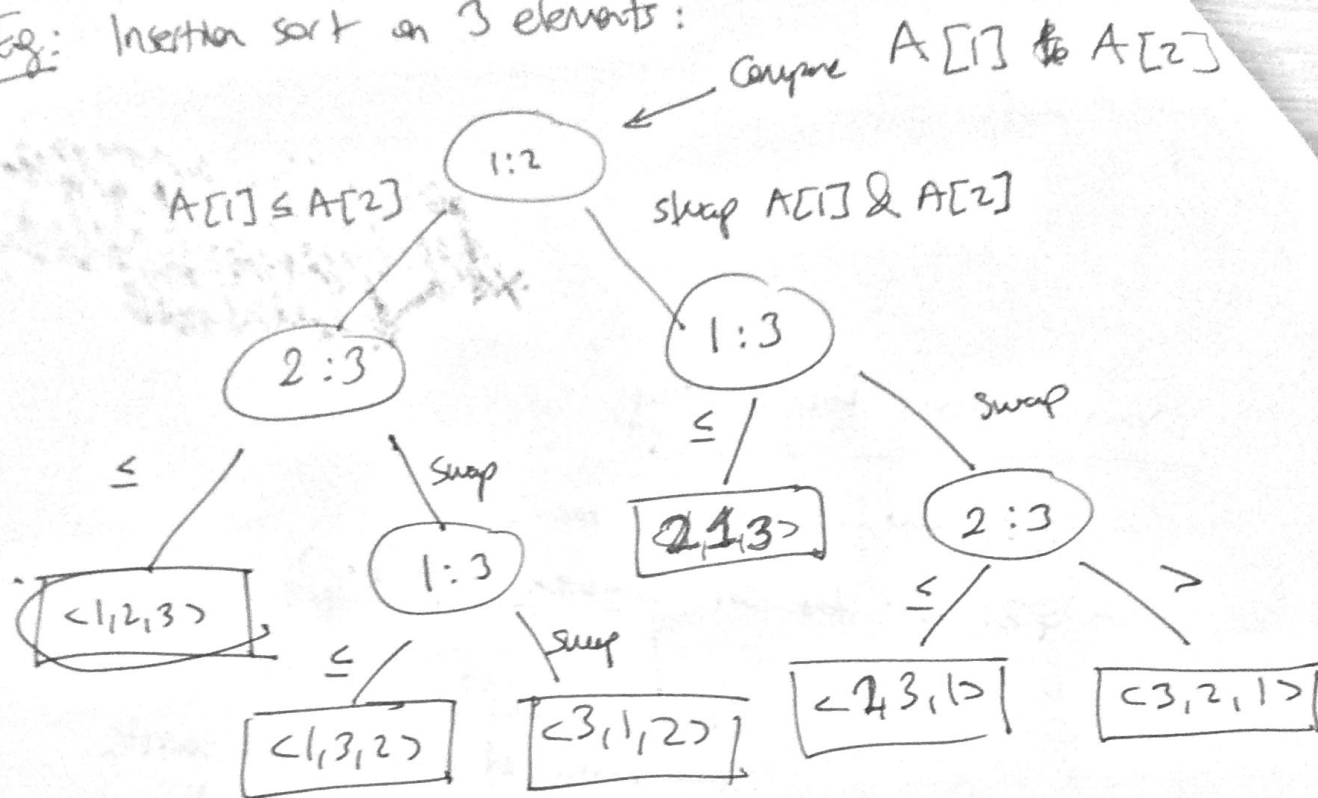 Eg: Insertion sort on 3 elements:
Compare A[1] to A[2]
1:2
A[1] ≤ A[2]
swap A[1] & A[2]
2:3
1:3
≤
swap
≤
swap
<1,2,3>
1:3
<2,1,3>
2:3
≤
swap
≤
>
<1,3,2>
<3,1,2>
<2,3,1>
<3,2,1>